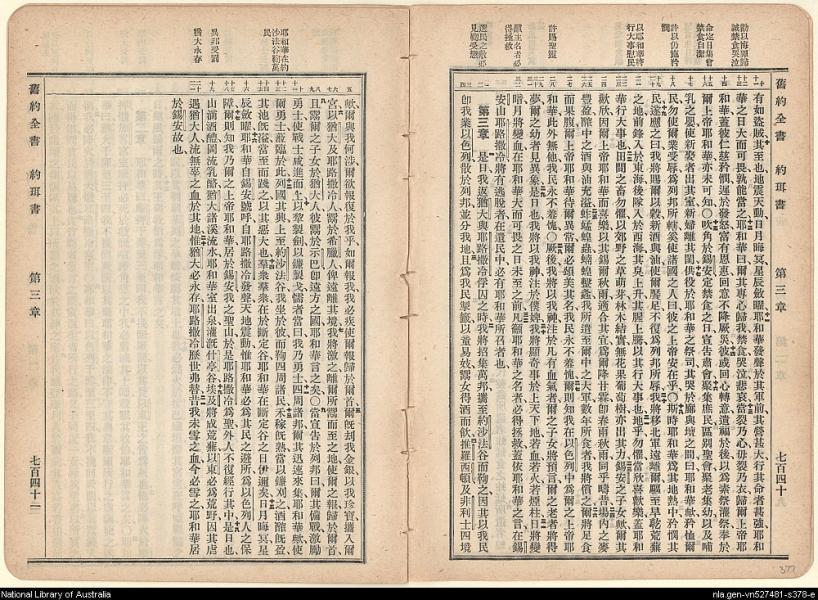 勸以悔罪歸誠禁食哭泣
命定日集會禁食自潔
許以仍施矜憫
以耶和華將行大事慰民
許賜聖靈
籲主名者必得拯救
舊約全書 約珥書 第三章 七百四十一
有如盜賊其至也地震天動日月晦冥星辰斂曜耶和華發聲於其軍前其營甚大行其命者甚強耶和
華之日大而可畏孰能當之耶和華曰爾其專心歸我禁食哭泣悲哀當裂乃心毋裂乃衣歸爾上帝耶
和華蓋彼仁慈矜憫遲於發怒富有恩惠回意不降厥災彼或回心轉意遺福於後以爲素祭灌祭奉於
爾上帝耶和華亦未可知○吹角於錫安定禁食之日宣告肅會聚集庶民區別聖會聚老集幼以及哺
乳之嬰使新娶者出其室新婦離其閨供役於耶和華之祭司其哭於廊與壇之間曰耶和華歟矜恤爾
民勿使爾業受辱爲列邦所轄奚使諸國之人曰彼之上帝安在乎○斯時耶和華爲其地熱中矜憫其
民遂應之曰我將賜爾以穀新酒與油使爾饜足不復爲列邦所辱我將移北軍遠離爾驅至旱乾荒蕪
之地前鋒入於東海後隊入於西海其臭上升其腥上騰以其行大事也地乎勿懼當欣喜歡樂蓋耶和
華行大事也田間之畜勿懼以郊野之草萌芽林木結實無花果葡萄樹亦出其力錫安之子女歟爾其
歡欣因爾上帝耶和華而喜樂以其錫秋雨適合其宜爲爾降甘霖卽春雨秋雨同乎疇昔場內之麥
豐盈醡中之酒與油充溢蚱蜢蝗我所遣至爾中之大軍數年所食者我將償之爾將足食
而果腹爾上帝耶和華待爾異常爾必頌美其名我民永不羞愧爾則知我在以色列中爲爾之上帝耶
和華此外無他我民永不羞愧○厥後我將以我神注於凡有血氣者爾之子女將預言爾之老者將得
夢爾之幼者見異象是日也我將以我神注於僕婢我將顯奇事於上天下地若血若火若煙柱日將變
暗月將變血在耶和華大而可畏之日未至之前凡籲耶和華之名者必得拯救蓋依耶和華之言在錫
安山耶路撒冷將有逃脫者在遺民中必有耶和華所召者也
第三章 是日我返猶大與耶路撒冷俘囚之時我將招集萬邦攜至約沙法谷而鞫之因其以我民
卽我業以色列散於列邦並分我地且爲我民掣籤以童易妓鬻女得酒而飲推羅西頓及非利士四境
耶和華在約沙法谷鞫萬民
異邦受罰
猶大永存
歟爾與我何涉爾欲報復於我乎如爾報我我必疾使爾報歸於爾首爾旣劫我金銀以我珍寶攜入爾
宮以猶大及耶路撒冷人鬻於希臘人俾遠離其境我將激之離爾所鬻而至之地使爾之報歸於爾首
且鬻爾之子女於猶大人彼鬻於示巴卽遠方之國耶和華言之矣○當宣告於列邦曰爾其備戰激勵
勇士使戰士咸進而上以犂製劍以鐮製戈懦者當曰我乃勇士四周諸邦爾其迅速來集耶和華歟使
爾勇士蒞臨於此列國其興上至約沙法谷我坐於彼而鞫四周諸民禾稼旣熟當以鐮刈之酒醡旣盈
其池旣溢當至而踐之以其惡大也羣衆羣衆在於斷定谷耶和華在斷定谷之日伊邇矣日月晦冥星
辰斂曜耶和華自錫安號呼自耶路撒冷發聲天地震動惟耶和華必爲其民之避所爲以色列人之保
障爾則知我乃爾之上帝耶和華居於錫安我之聖山於是耶路撒冷爲聖外人不復經行其中是日也
山滴酒醴岡流乳酪猶大諸溪流水耶和華室出泉灌漑什亭谷埃及將成荒蕪以東必爲荒野因其虐
遇猶大人流無辜之血於其地惟猶大必永在耶路撒冷歷世弗替昔我未雪之血今必雪之耶和華居
於錫安故也
舊約全書 約珥書 第三章 七百四十二
377
National Library of Australia
nla.gen-vn527481-s378-e